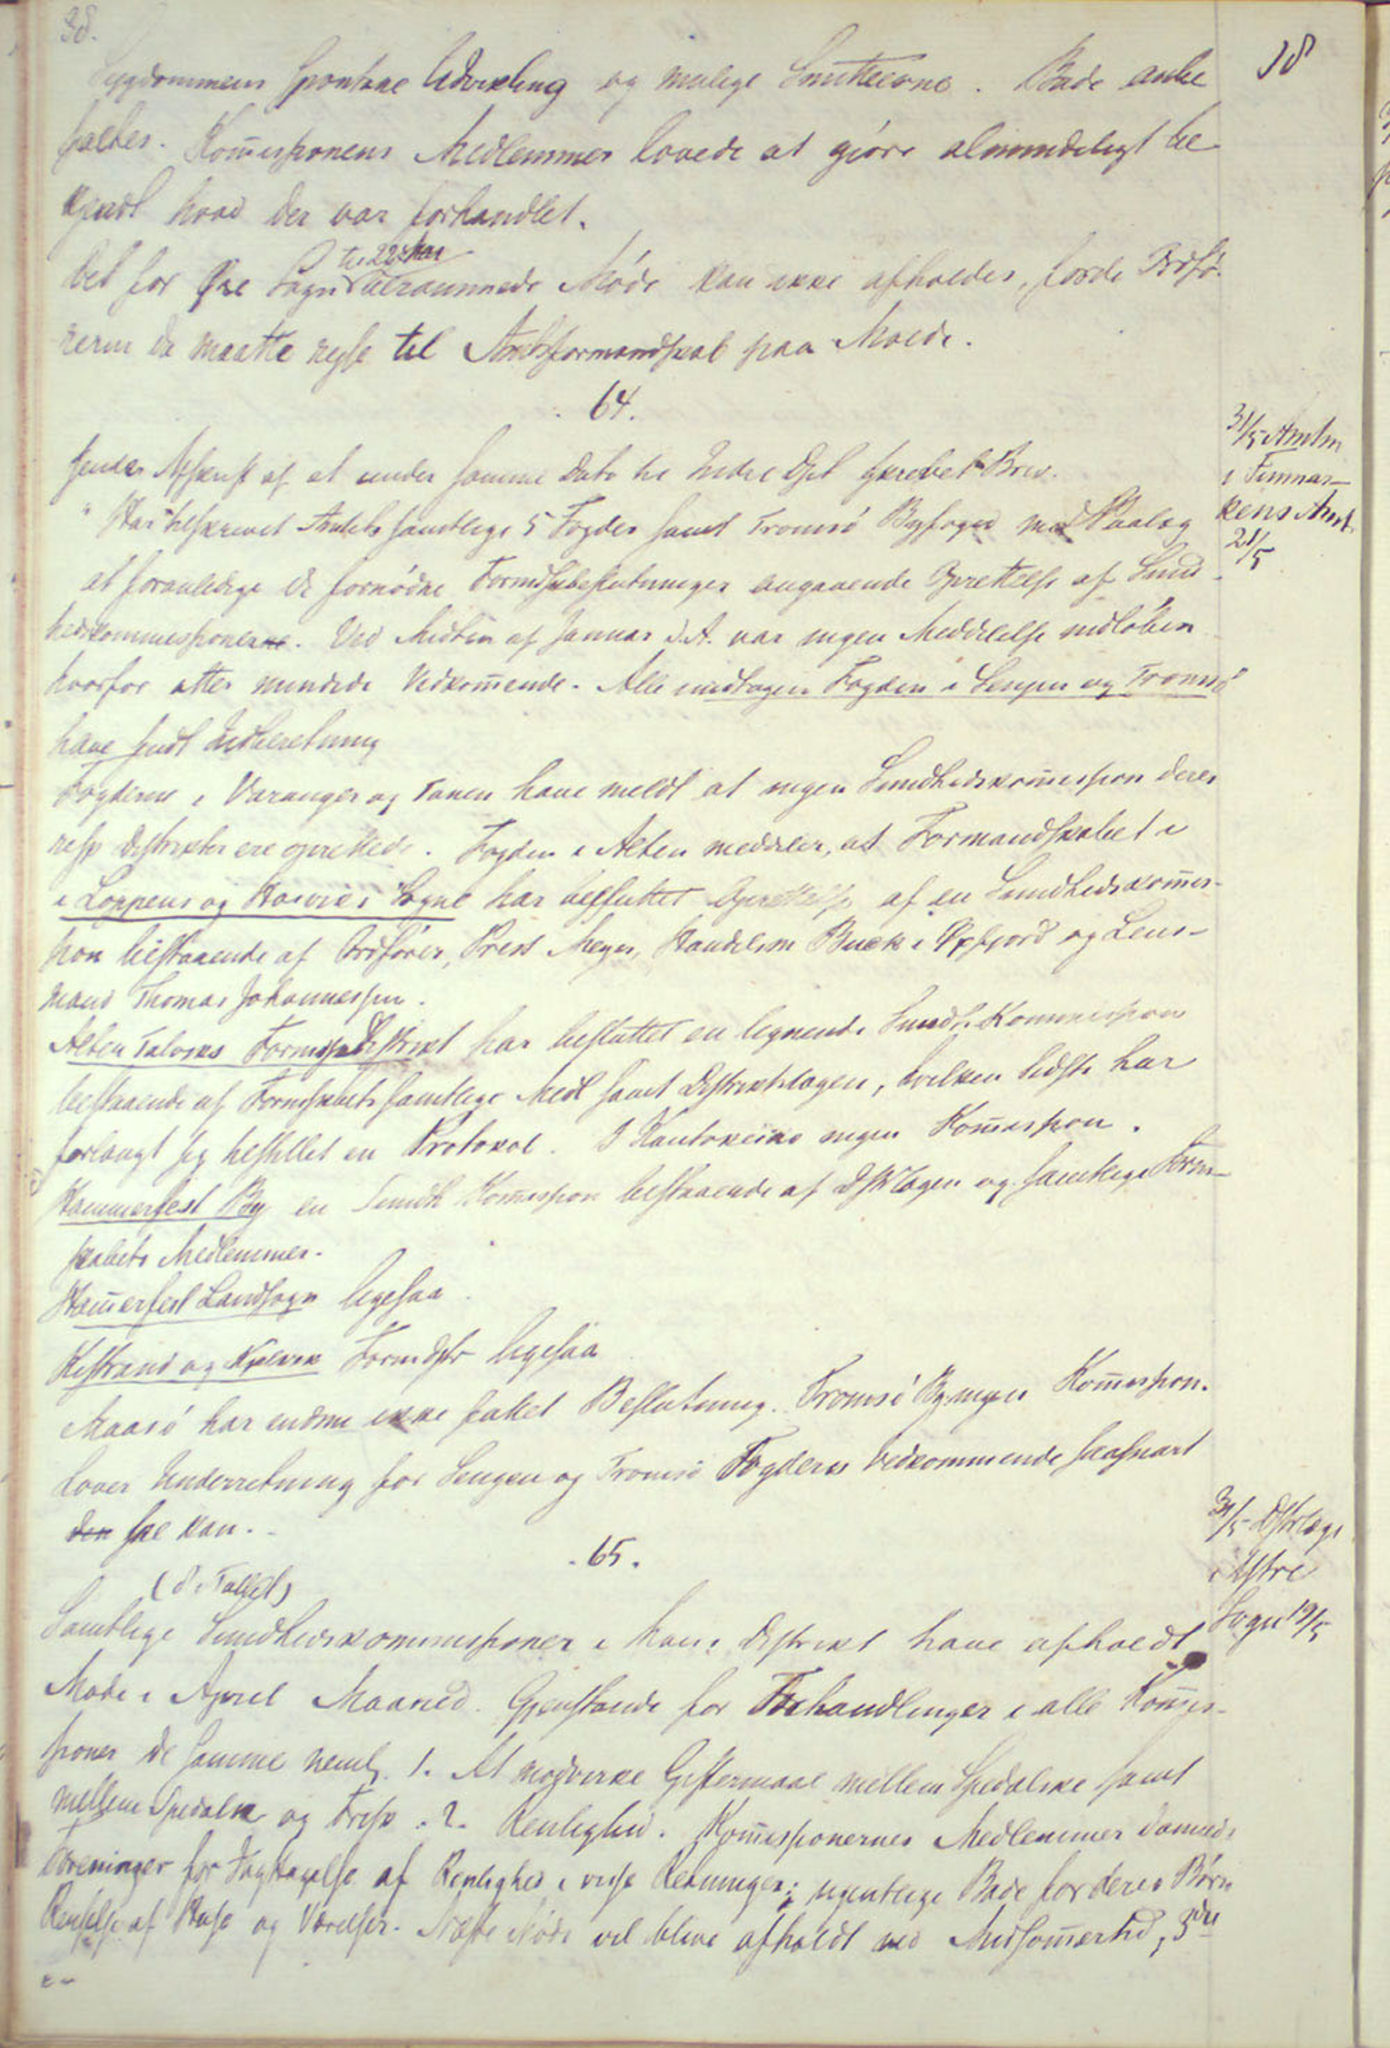 38.
18
Sygdommens spontane Udvikling og mulige Smitteevne. Bade anbe
faltes. Kom̅issionens Medlemmer lovede at gjöre almindeligt be
kjendt hvad der var forhandlet.
til 22de Mai
Det for Sogn berammede Möde kan ikke afholdes, fordi Ordfö-
reren da maatte rejse til Amtsformandskab paa Molde.
64.
31/5 Amtm
i Finmar-
kens Amt.
21/5
Sender Afskrift af et under samme Dato til Indre Dpt skrevet Brev.
" Har tilskrevet Amtets samtlige 5 Fogder samt Tromsö Byfoged med Paalæg
at foranledige de fornödne Formdskbeslutninger angaaende Oprettelse af Sund
hedskommissionerne. Ved Midten af Januar d. A. var ingen Meddelelse indlöben
hvorfor atter mindede Vedkom̅ende. Alle undtagen Fogden i Senjen og Tromsö
have sendt Indberetning
Fogderne i Varanger og Tanen have meldt at ingen Sundhedskom̅ission i deres
resp Distrikter ere oprettede. Fogden i Alten meddeler, at Formandskabet i
i Loppens og Hasvigs Sogne har besluttet Oprettelse af en Sundhedskom̅is-
sion bestaaende af Ordförer, Præst Meyer, Handelsm Buck i Öxfjord og Lens-
mand Thomas Johannessen.
Alten Talviks Formskdistrikt har besluttet en lignende Sundh. Kommission
bestaaende af Formskabets samtlige Medl samt Distriktslægen, hvilken sidste har
forlangt sig tilstillet en Protokol. I Kautokeino ingen Kom̅ission.
Hammerfest By en Sundh Kom̅ission bestaaende af Dstrlægen og samtlige Form-
skabets Medlemmer.
Ham̅erfest Landsogn ligesaa
Kistrand og Kjelvik Formdstr ligesaa
Maasö har endnu ikke fattet Beslutning. Tromsö By ingen Kom̅ission.
Lover Underretning for Senjen og Tromsö Fogderis Vedkommende saasnart
den ske kan.
65.
31/5 Dstrlæge
i Ytre
Sogn 19/5
(8 i Tallet)
Samtlige Sundhedskommissioner i hans Distrikt have afholdt
Möde i April Maaned. Gjenstande for Forhandlinger i alle Kom̅is-
sioner de samme neml. 1. At modvirke Giftermaal mellem Spedalske samt
mellem Spedalske og Friske. 2. Renlighed. Kom̅issionernes Medlemmer dannede
Foreninger for Iagttagelse af Renlighed i visse Retninger: ugentlige Bade for deres Börn
Renselse af Huse og Værelser. Næste Möde vil blive afholdt ved Midsom̅ertid, 3die